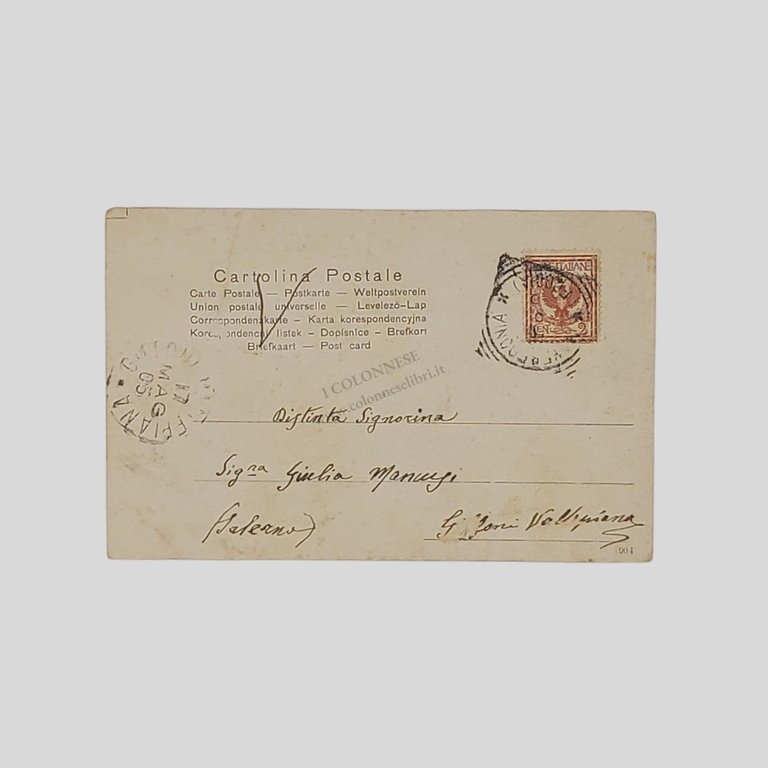 Cartolina Postale
Carte Postale — Postkarte — Weltpostverein
Union postale universelle — Levelező-Lap
Correspondenzkarte – Karta korespondencyjna
listek – Dopisnice – Brefkort
Briefkaart — Post card
ITALIANE
2
MAG
05
I COLONNESE
colonneselibri.it
Distinta Signorina
Sigra Giulia Mancusi
(Salerno)
Giffoni Vallepiana